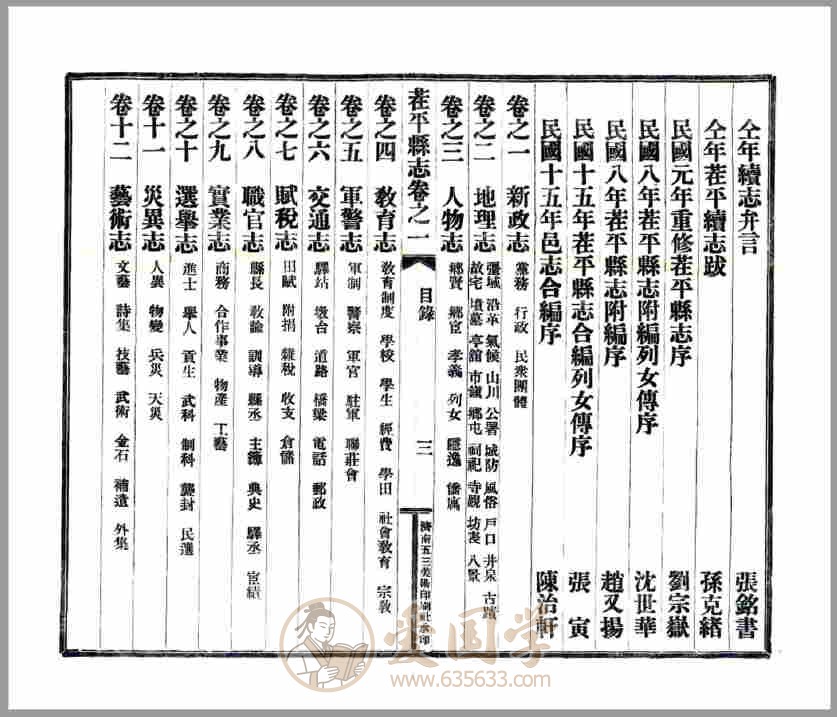 仝年續志弁言 張銘書
仝年茌平續志跋 孫克緒
民國元年重修茌平縣志序 劉宗嶽
民國八年茌平縣志附編列女傳序 沈世華
民國八年茌平縣志附編序 趙又揚
民國十五年茌平縣志合編列女傳序 張寅
民國十五年邑志合編序 陳治軒
卷之一 新政志 黨務 行政 民衆團體
卷之二 地理志 疆域 沿革 氣候 山川 公署 城防 風俗 戶口 井泉 古蹟 故宅 墳墓 亭館 市鎮 鄉屯 祠祀 寺觀 坊表 八景
卷之三 人物志 鄉賢 鄉宦 孝義 列女 隱逸 僑寓
茌平縣志卷之一 目錄 三 濟南五三美術印刷社承印
卷之四 教育志 教育制度 學校 學生 經費 學田 社會教育 宗教
卷之五 軍警志 軍制 警察 軍官 駐軍 聯莊會
卷之六 交通志 驛站 墩台 道路 橋梁 電話 郵政
卷之七 賦稅志 田賦 附捐 雜稅 收支 倉儲
卷之八 職官志 縣長 教諭 訓導 縣丞 主簿 典史 驛丞 宦績
卷之九 實業志 商務 合作事業 物產 工藝
卷之十 選舉志 進士 舉人 貢生 武科 制科 襲封 民選
卷十一 災異志 人異 物變 兵災 天災
卷十二 藝術志 文藝 詩集 技藝 武術 金石 補遺 外集
爱国学
www.635633.com